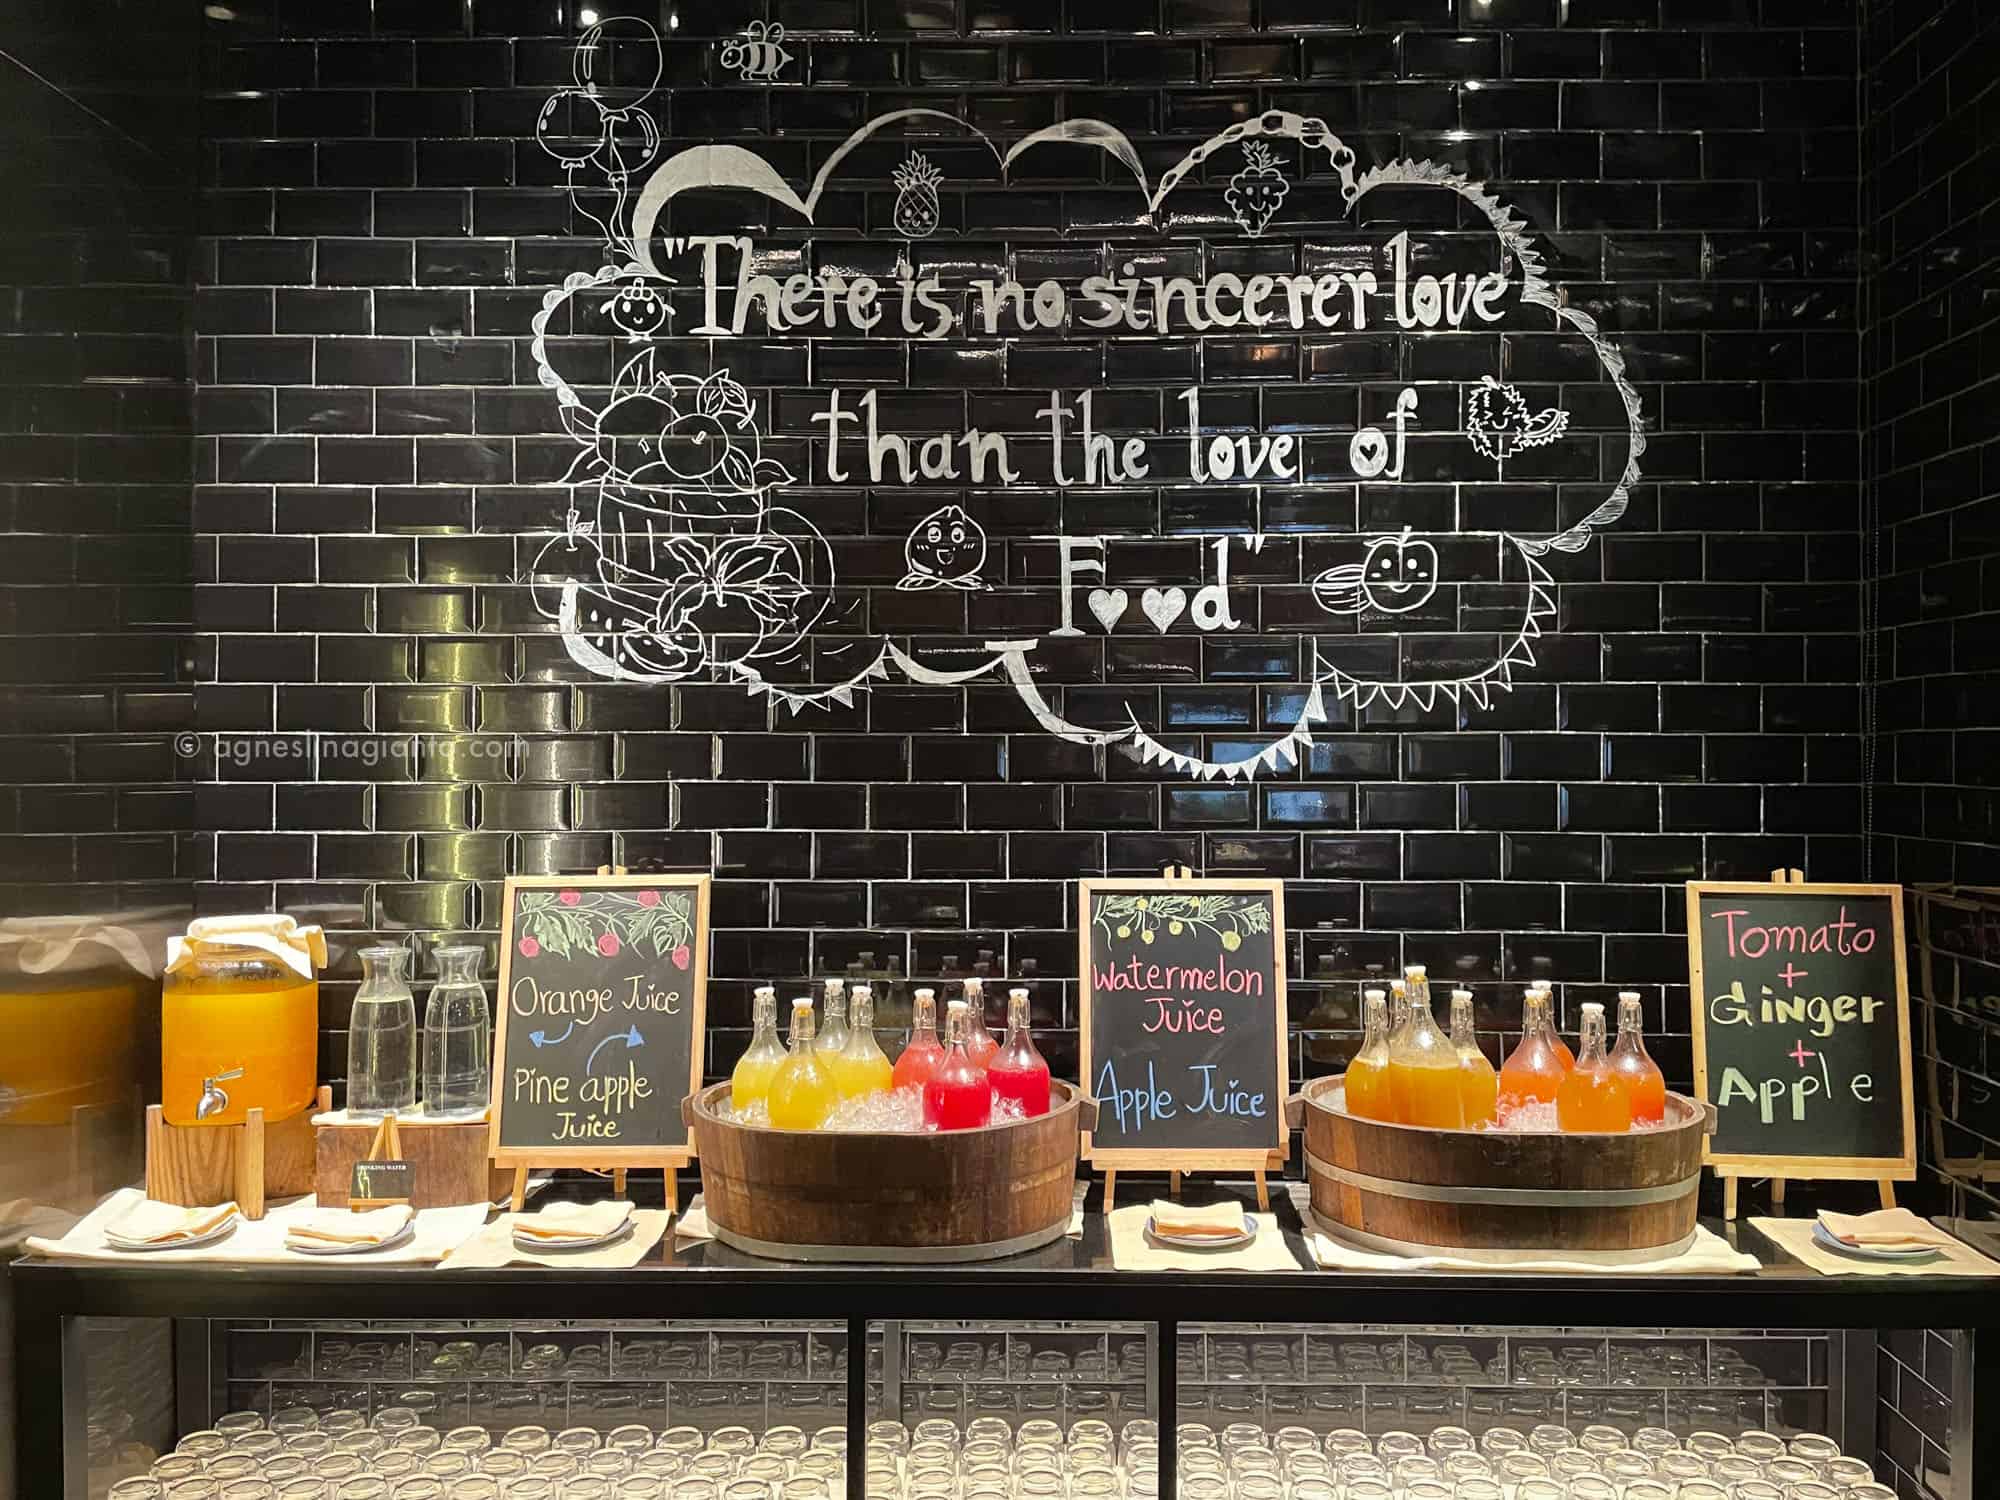 "There is no sincerer love
than the love of
Food"
© agneslinagianto.com
Orange Juice
Pine apple
Juice
Watermelon
Juice
Apple Juice
Tomato
+
Ginger
+
Apple
DRINKING WATER